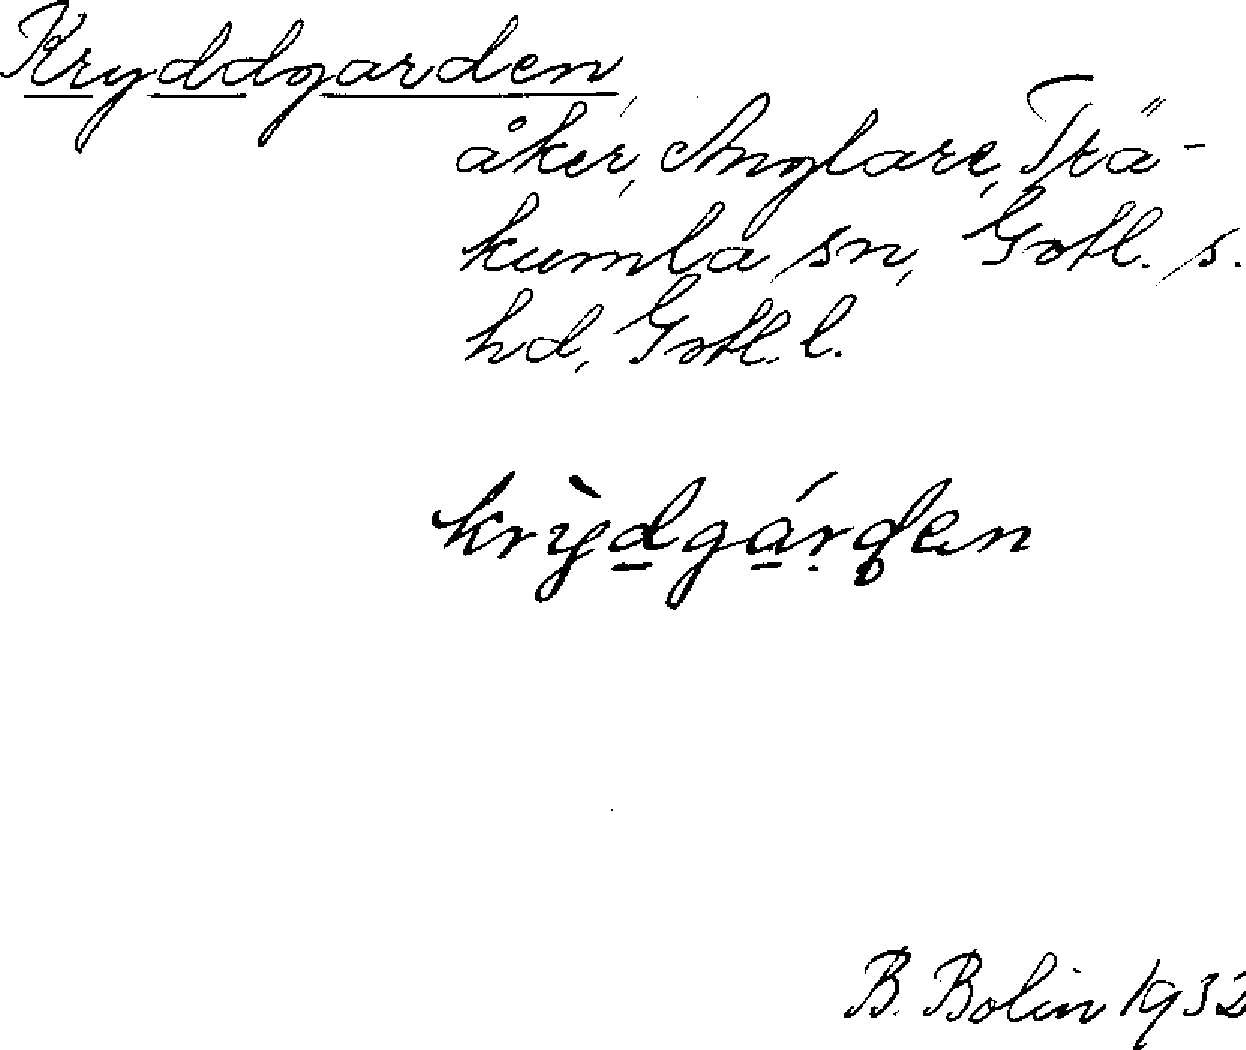 Kryddgarden
åker, Anglare, Trä-
kumla sn, Gotl. s.
hd, Gotl. l.
krỳdgárden
B. Bolin 1932